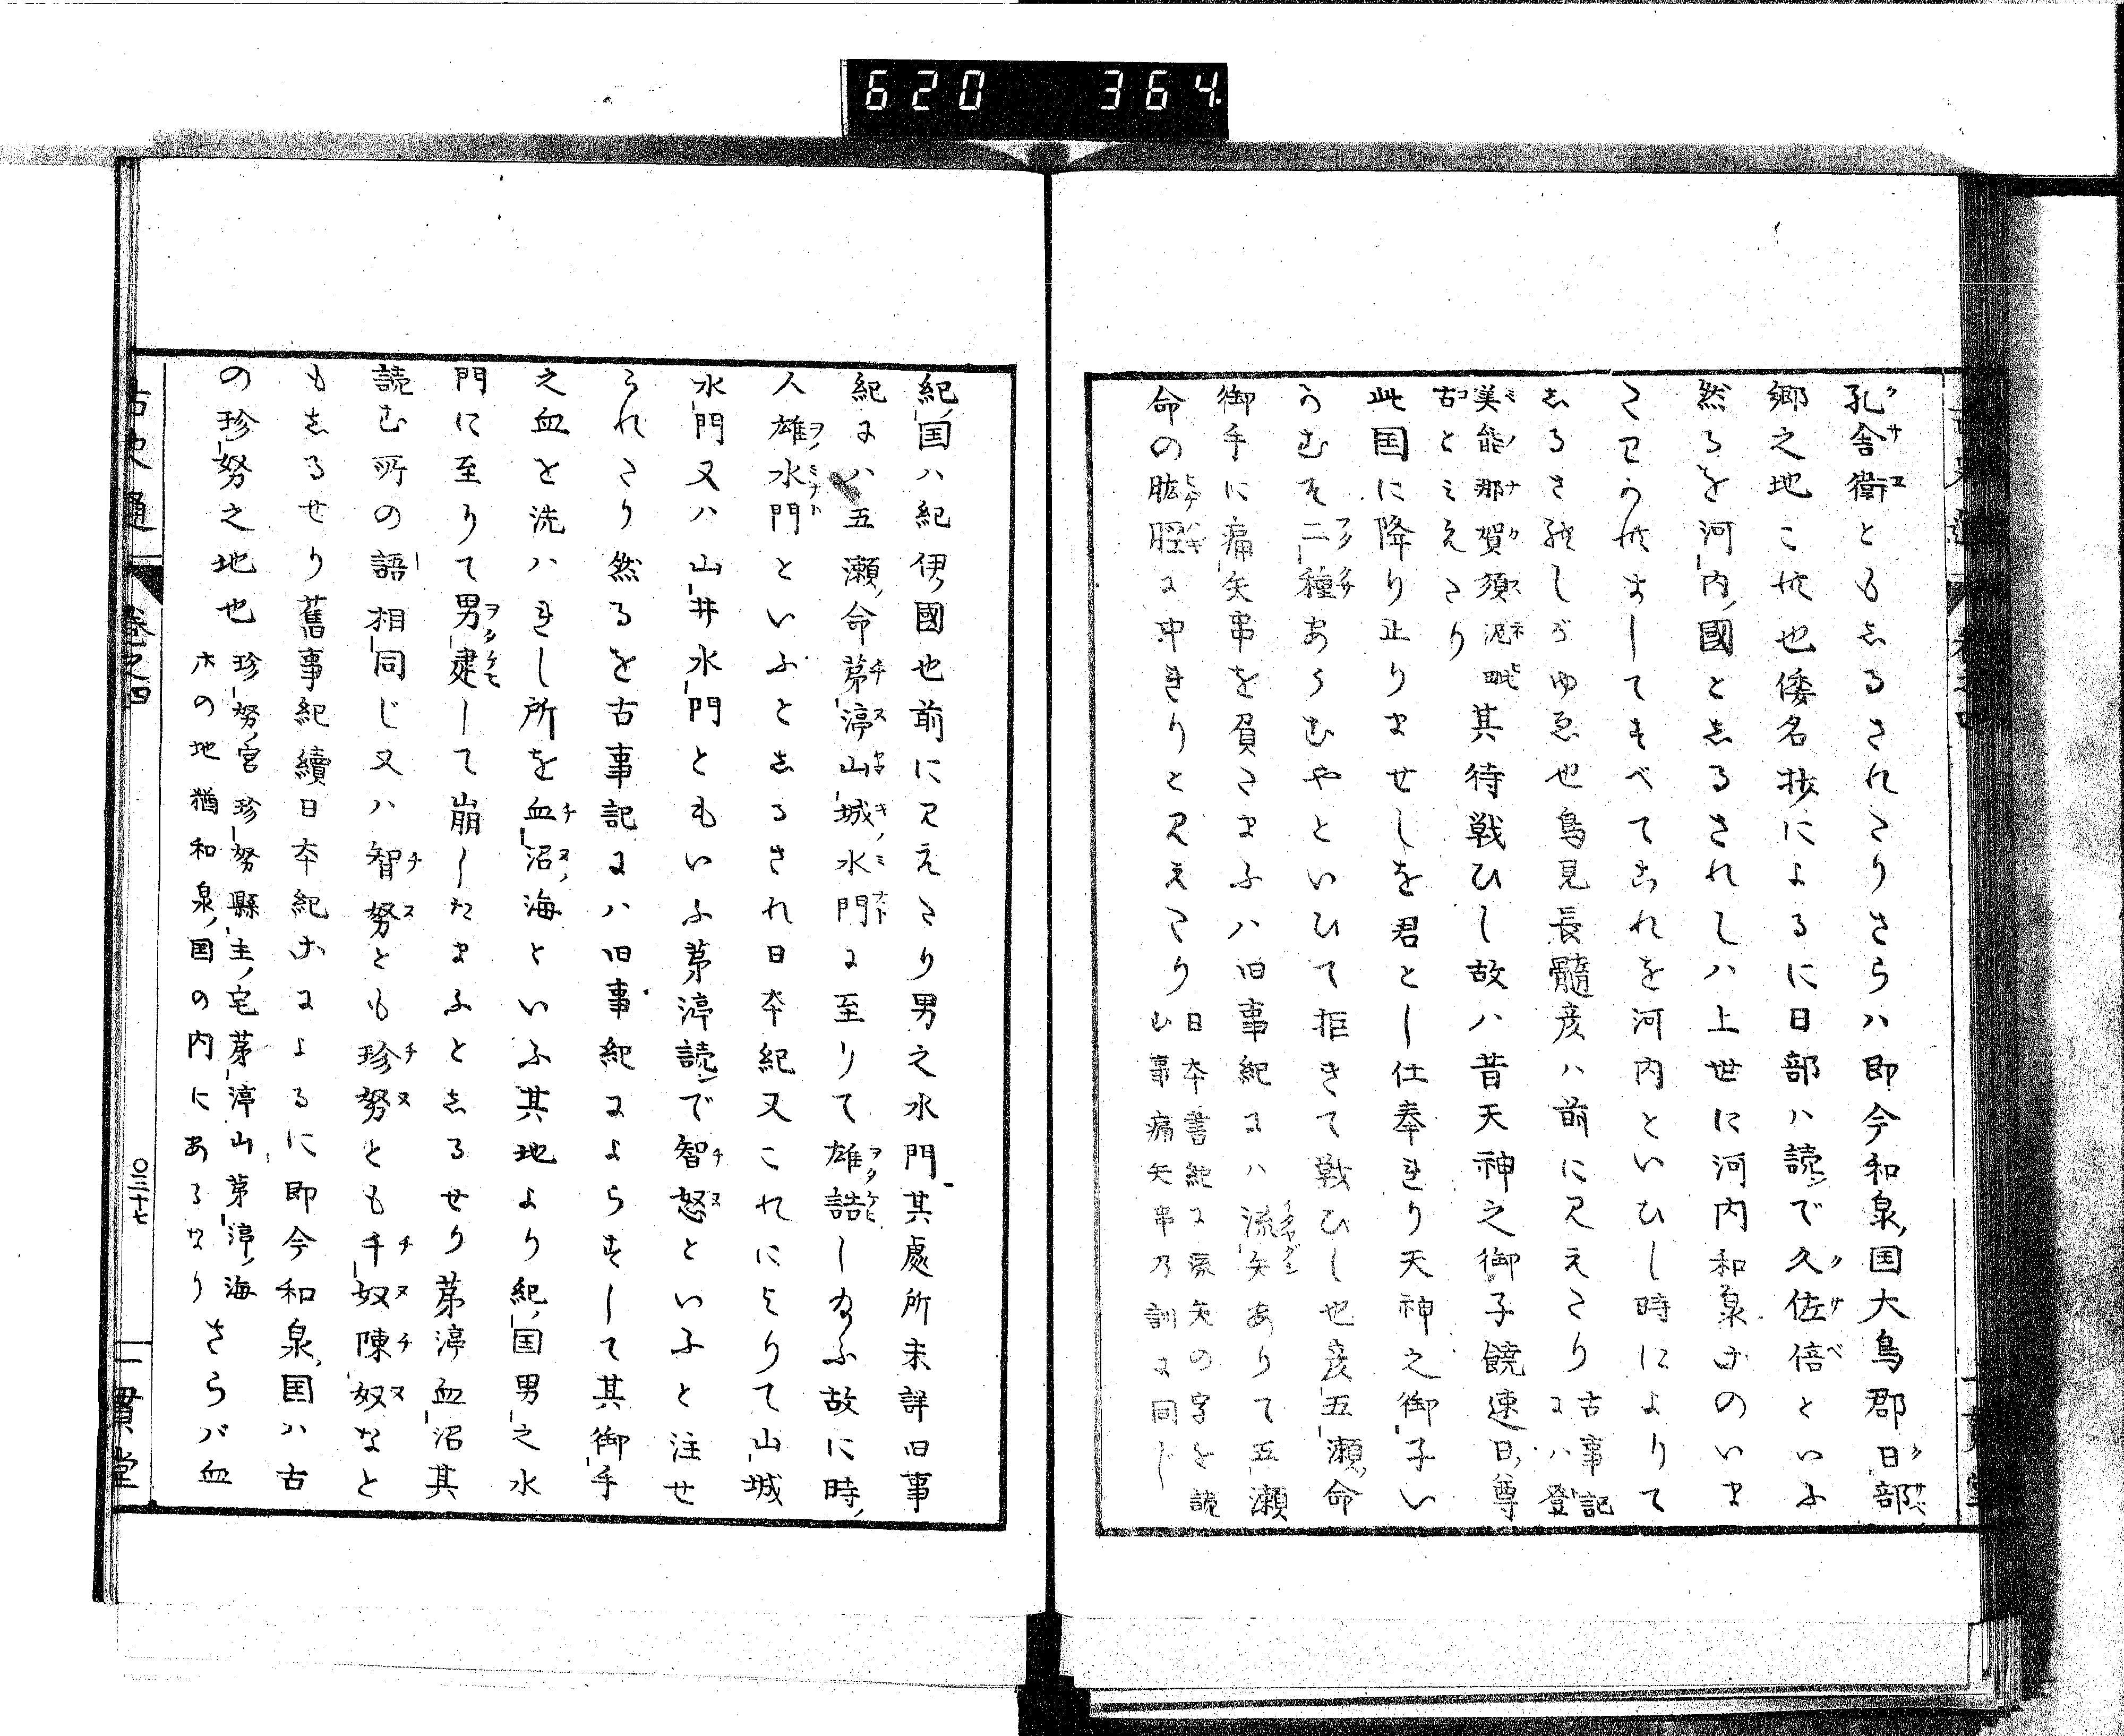 620 364.
孔舎衛ともしるされたりさらハ即今和泉国大鳥郡日部
郷之地これ也倭名抄によるに日部ハ読で久佐倍といふ
然るを河内國としるされしハ上世に河内和泉等のいま
たわかれすしてすべてこれを河内といひし時によりて
しるされしがゆゑ也鳥見長髓彦ハ前に見えたり
古事記
にハ登
美能那賀須泥毗
古とみえたり
其待戦ひし故ハ昔天神之御子饒速日尊
此国に降り止りませしを君とし仕奉れり天神之御子い
かむそ二種あらむやといひて拒きて戦ひし也彦五瀬命
御手に痛矢串を負たまふハ旧事紀にハ流矢ありて五瀬
命の肱脛に中れりと見えたり
日本書紀に流矢の字を読
む事痛矢串乃訓に同し
紀国ハ紀伊國也前に見えたり男之水門其處所未詳旧事
紀にハ五瀬命茅渟山城水門に至りて雄誥し給ふ故に時
人雄水門といふとしるされ日本紀又これによりて山城
水門又ハ山井水門ともいふ茅渟読で智怒といふと注せ
られたり然るを古事記にハ旧事紀によらすして其御手
之血を洗ハれし所を血沼海といふ其地より紀国男之水
門に至りて男建して崩したまふとしるせり茅渟血沼其
読む所の語相同じ又ハ智努とも珍努とも千奴陳奴なと
もしるせり舊事紀續日本紀等によるに即今和泉国ハ古
の珍努之地也
珍努宮珍努縣主宅茅渟山茅渟海
木の地猶和泉国の内にあるなり
さらバ血
古史通
巻之四
〇三十七
一貫堂